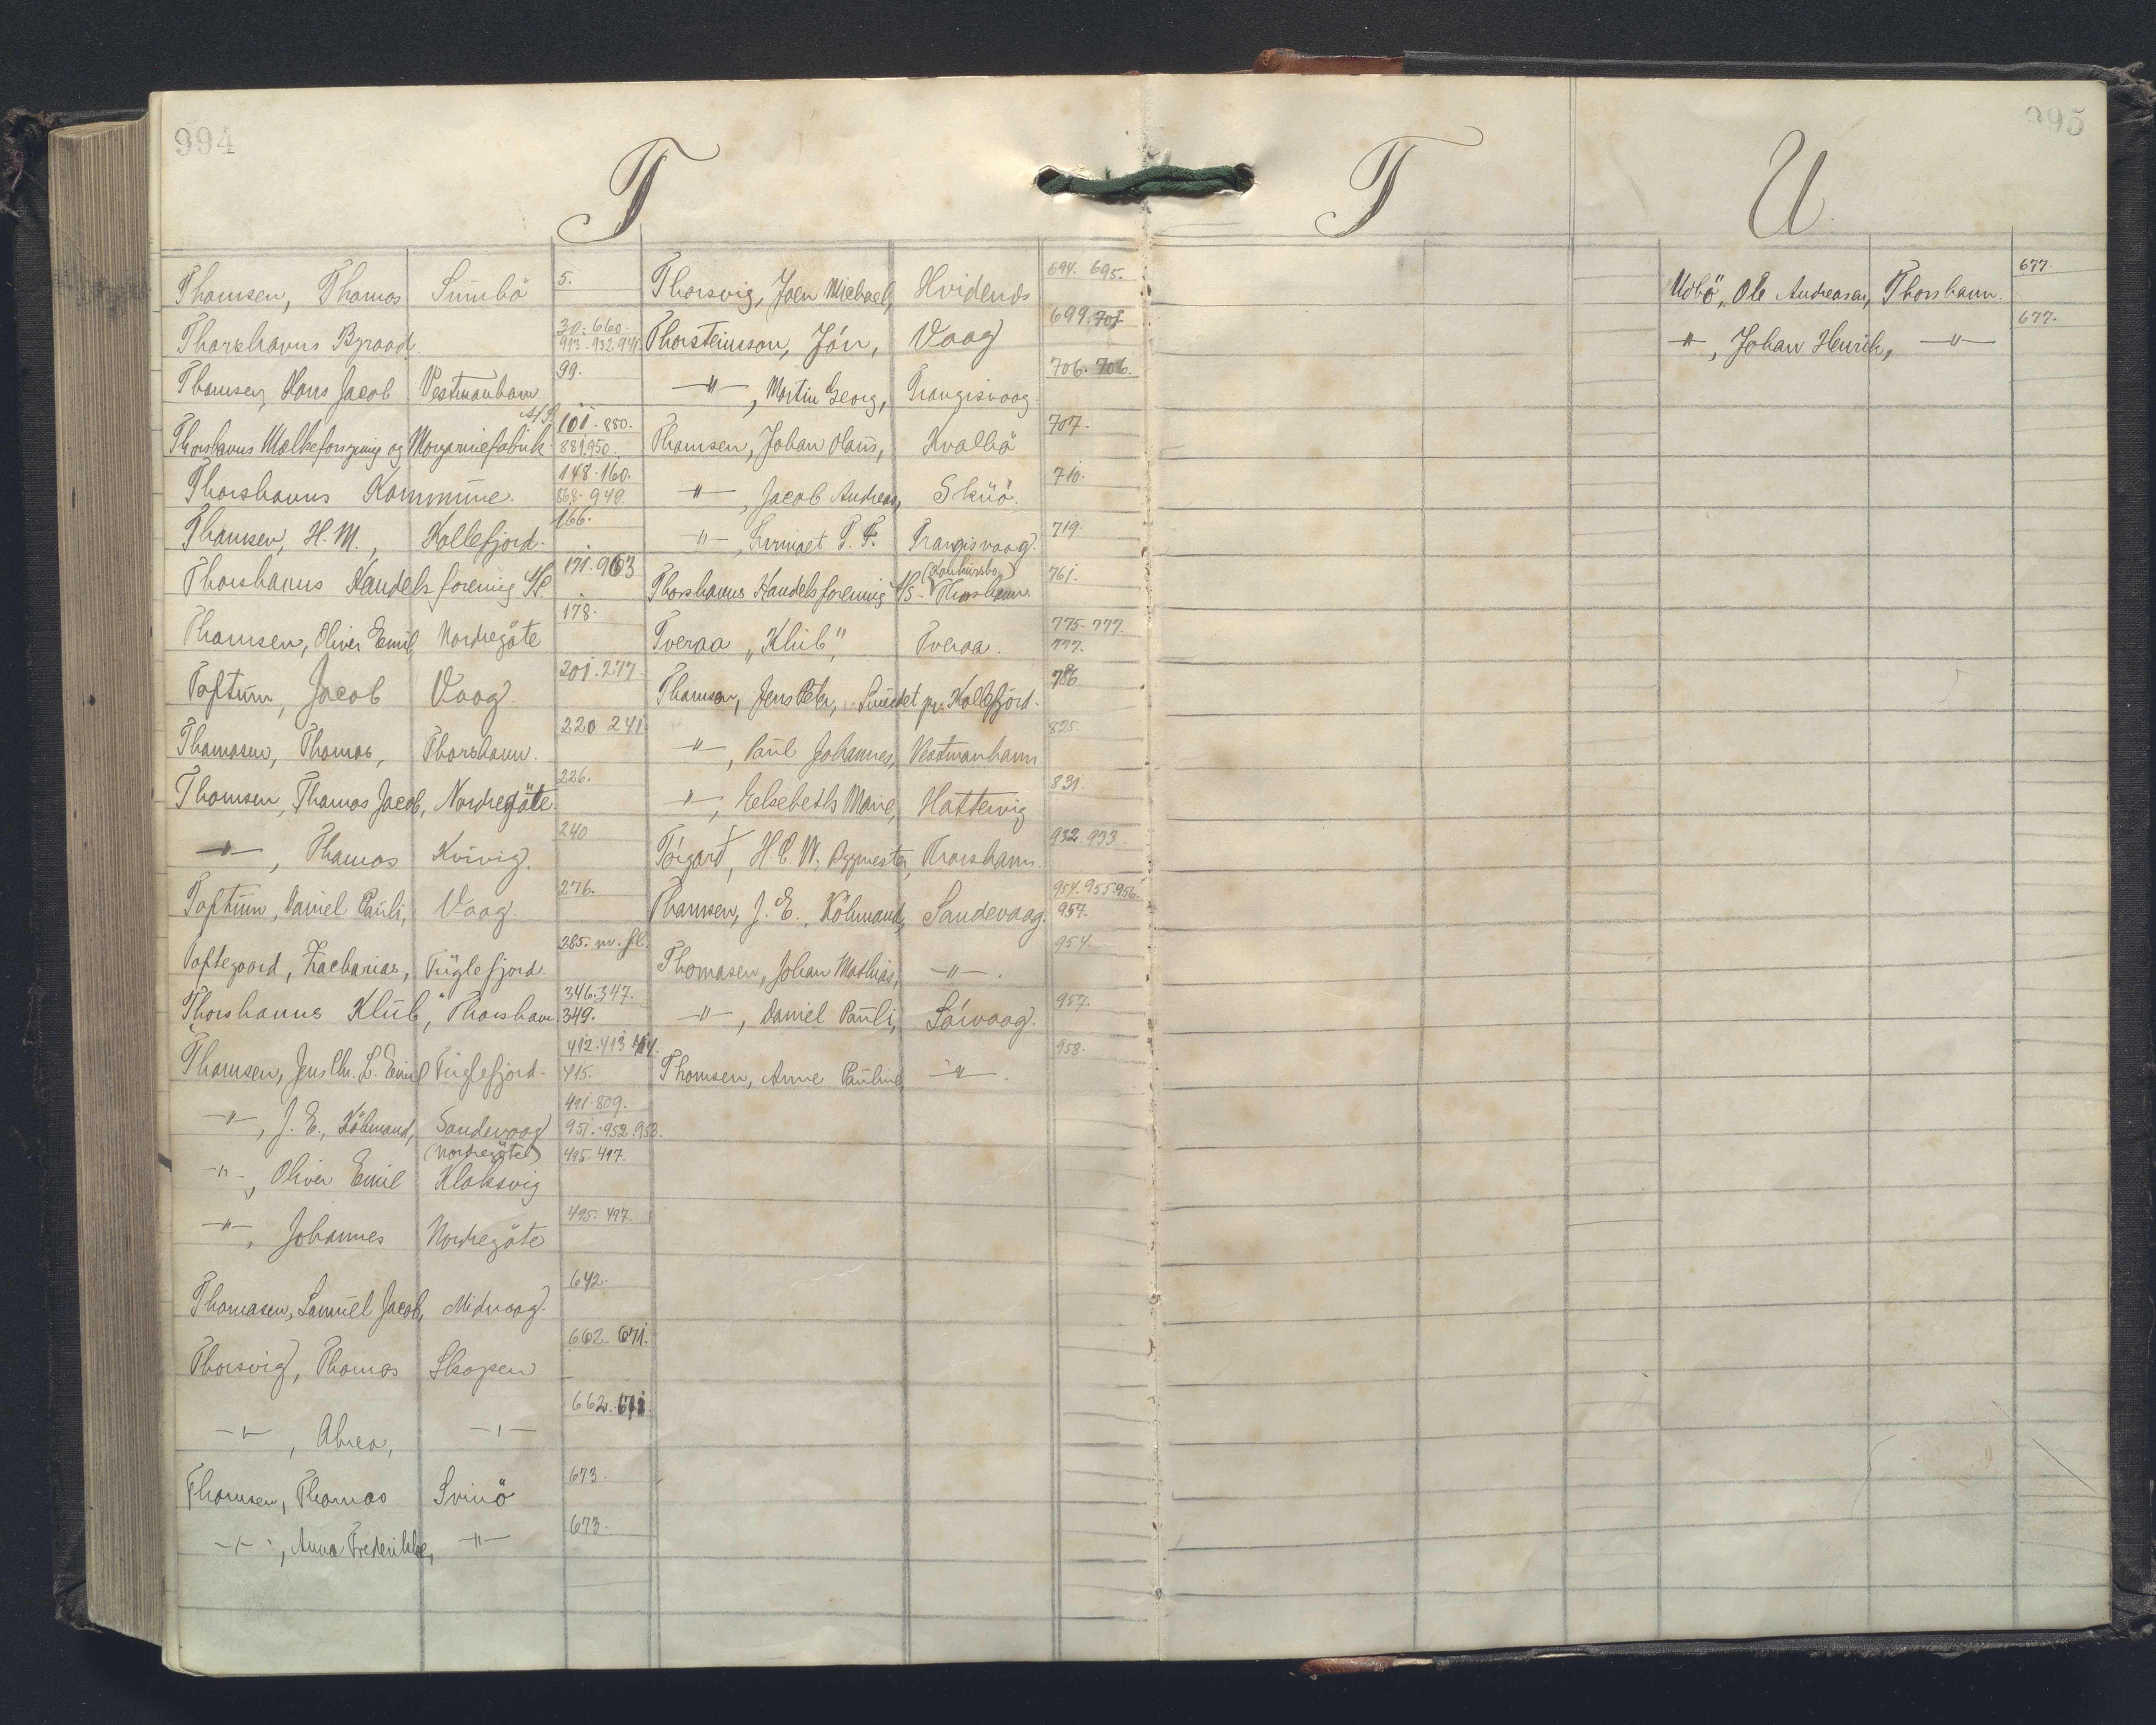 994
T
Thomsen, Thomas Sumbö 5.
Thorshavns Byraad 30. 660.
913. 932. 941.
Thomsen, Hans Jacob Vestmanhavn 99.
Thorshavns Mælkeforsyning og Margarinefabrik A/S 101. 880.
881. 950.
Thorshavns Kommune. 148. 160.
868. 949.
Thomsen, H. M., Kollefjord. 166.
Thorshavns Handelsforening A/S 171. 963
Thomsen, Oliver Emil Nordregöte 178.
Toftum, Jacob Vaag. 201. 277.
Thomasen, Thomas, Thorshavn. 220 241.
Thomsen, Thomas Jacob, Nordregöte 226.
—"—, Thomas Kvivig. 240
Toftum, Daniel Pauli, Vaag. 276.
Toftegaard, Zacharias, Fuglefjord. 285. nr. fl.
Thorshavns Klub," Thorshavn. 346. 347.
349.
Thomsen, Jens Chr. L. Emil Fuglefjord. 412. 413 414.
415.
—"—, J. E., Köbmand, Sandevaag 491. 809.
951. 952. 953.
—"—, Oliver Emil (Nordregöte) Klaksvig 495. 497.
—"—, Johannes Nordregöte 495. 497.
Thomasen, Samuel Jacob, Midvaag. 642.
Thorsvig, Thomas Skopen 662. 671.
—"—, Abrea, —"— 662. 671.
Thomsen, Thomas Svinö 673.
—"—, Anna Frederikke, —"— 673.
Thorsvig, Joen Michael, Hvidenæs 694. 695.
Thorsteinsson, Jón, Vaag 699. 701.
—"—, Martin Georg, Trangisvaag. 706. 706.
Thomsen, Johan Olaus, Kvalbö 707.
—"—, Jacob Andreas, Skuö. 710.
—"—, T. F. Trangisvaag. 719.
Thorshavns Handelsforening A/S (Konkursbo) Thorshavn. 761.
Tveraa „Klub", Tveraa. 775. 777.
777.
Thomsen, Jens Peter, Sundet pr. Kollefjord. 786
—"—, Paul Johannes, Vestmanhavn 825.
—"—, Elsebeth Marie, Hattervig 831.
Tórgard, H. C. W. Bygmester, Thorshavn. 932. 933.
Thomsen, J. E., Köbmand, Sandevaag. 954. 955. 956.
957.
Thomasen, Johan Mathias, —"—. 954.
—"—, Daniel Pauli, Sörvaag. 957.
Thomsen, Anne Pauline —"—. 958.
995
T
U
Udbö, Ole Andreasen, Thorshavn. 677.
—"—, Johan Henrik, —"— 677.